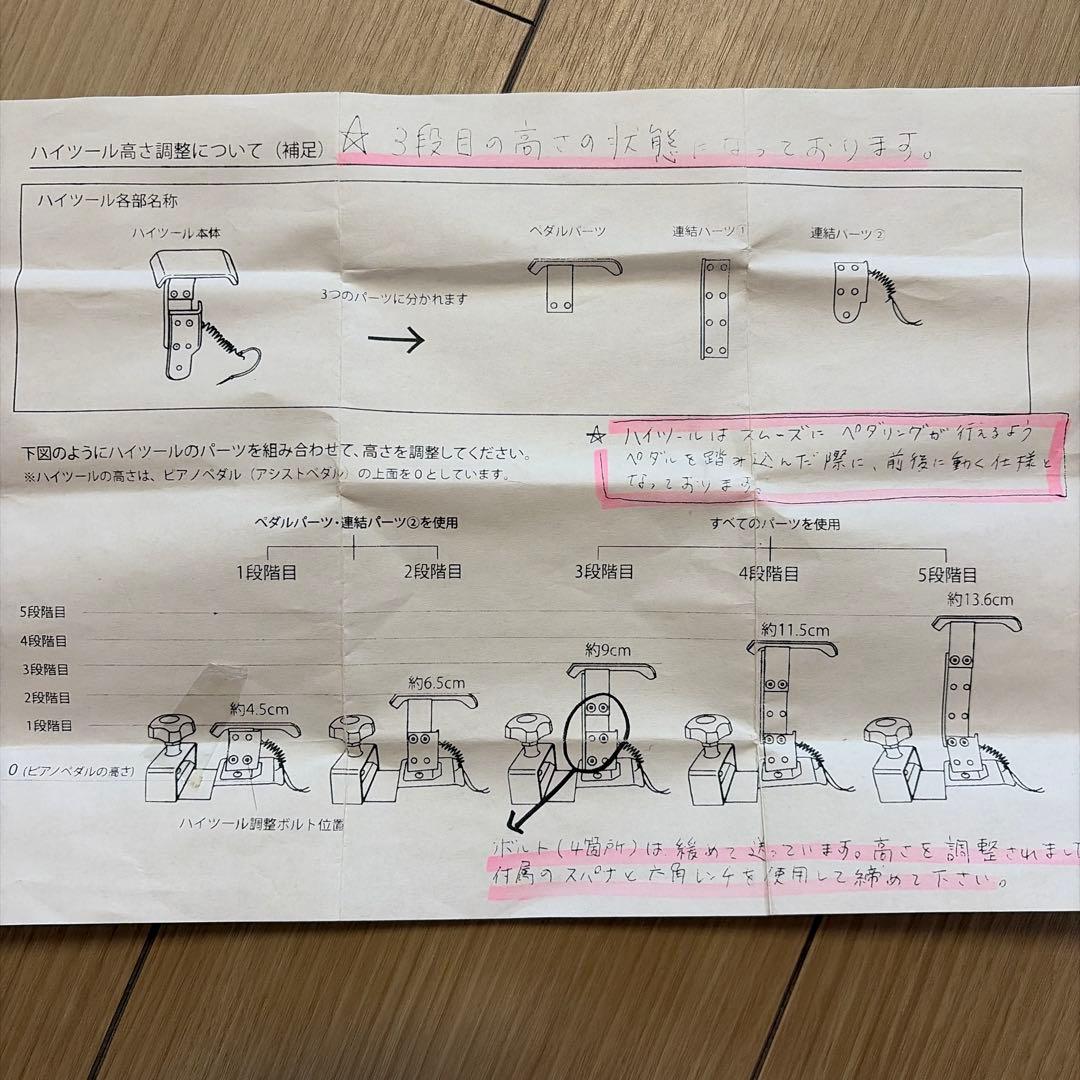 ハイツール高さ調整について（補足）
☆ 3段目の高さの状態になっております。
ハイツール各部名称
ハイツール本体
ペダルパーツ
連結パーツ①
連結パーツ②
3つのパーツに分かれます
下図のようにハイツールのパーツを組み合わせて、高さを調整してください。
※ハイツールの高さは、ピアノペダル（アシストペダル）の上面を0としています。
☆ ハイツールはスムーズにペダリングが行えるよう
ペダルを踏み込んだ際に、前後に動く仕様と
なっております。
ペダルパーツ・連結パーツ②を使用
すべてのパーツを使用
1段階目
2段階目
3段階目
4段階目
5段階目
5段階目
4段階目
3段階目
2段階目
1段階目
0（ピアノペダルの高さ）
約4.5cm
約6.5cm
約9cm
約11.5cm
約13.6cm
ハイツール調整ボルト位置
ボルト(4箇所)は、緩めて送っています。高さを調整されまし
付属のスパナと六角レンチを使用して締めて下さい。